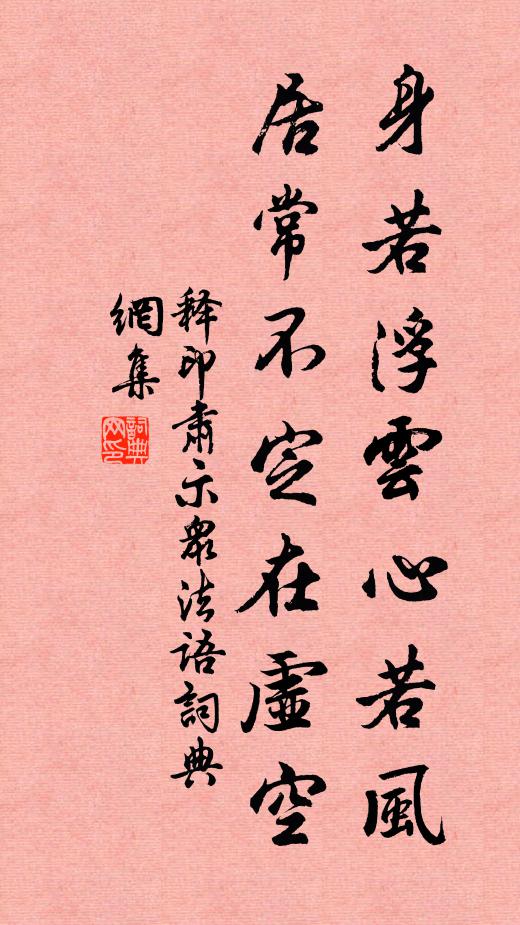 身若浮雲心若風
居常不定在虛空
释印肅示眾法語詞典
網集
詞典
网印